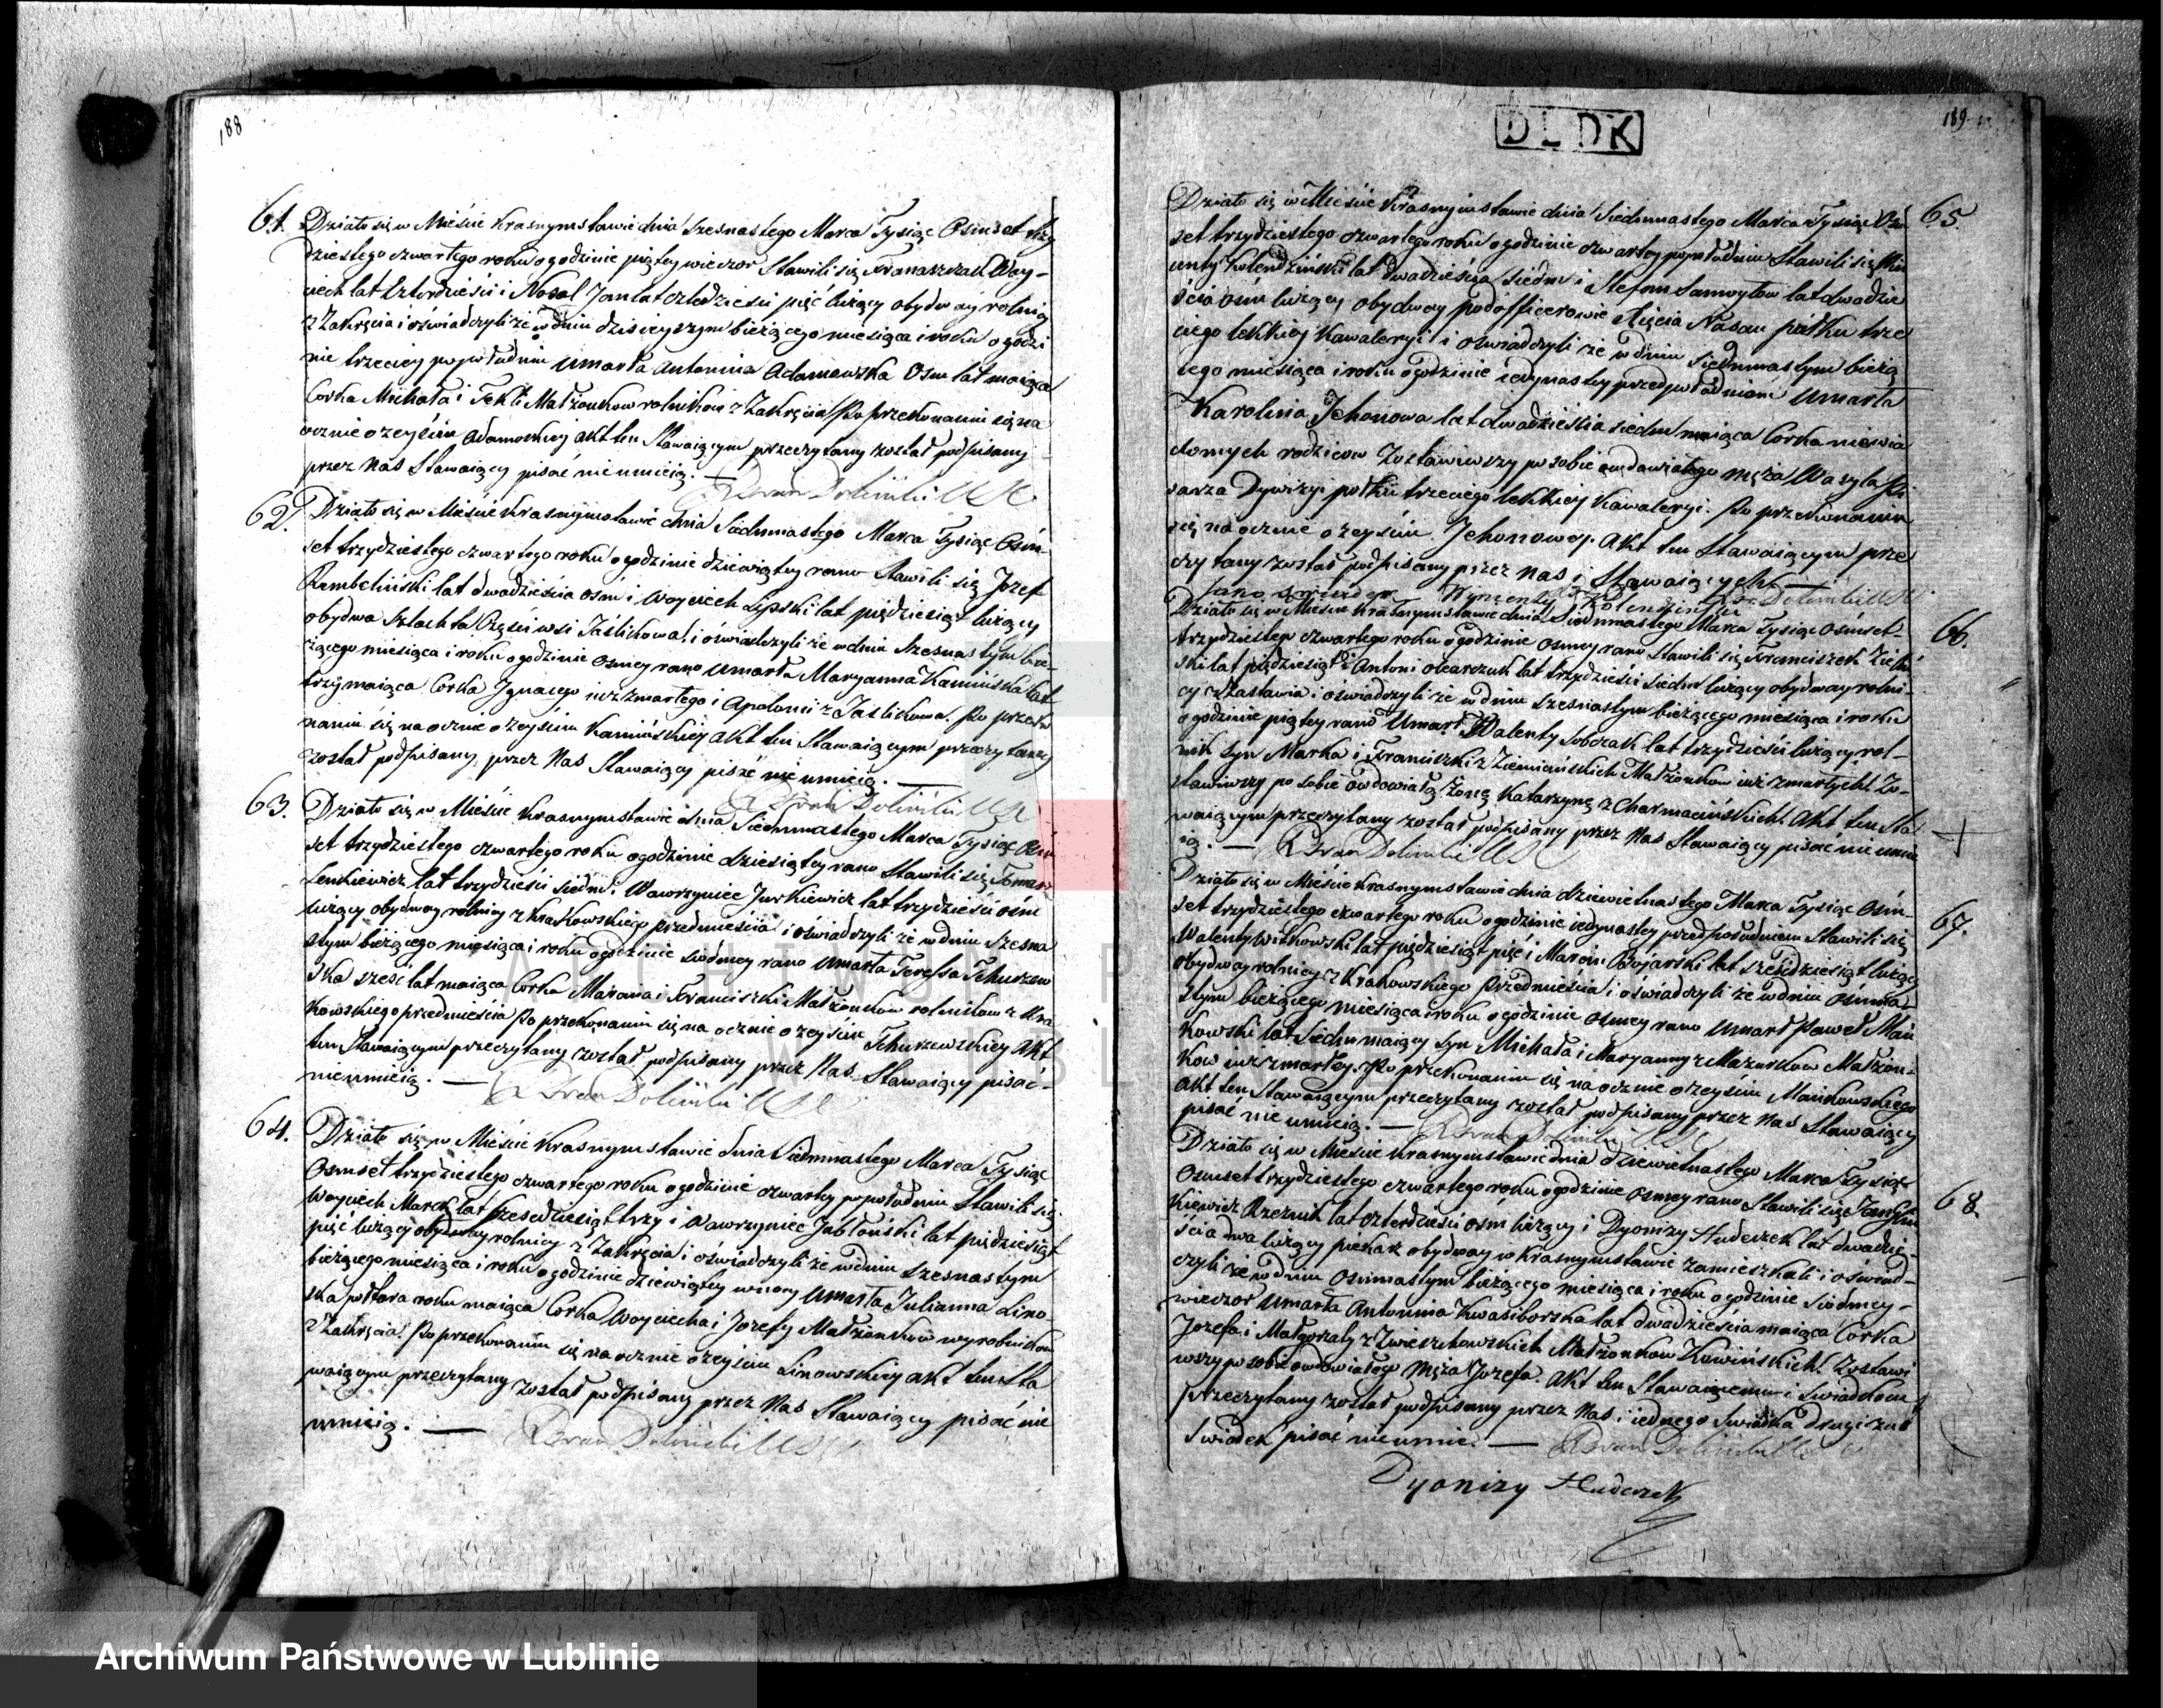 188
61. Działo się w Mieście Krasnymstawie dnia Szesnastego Marca Tysiąc Osmset trzy
dziestego czwartego roku o godzinie piątey wieczor Stawili się Franaszczak Woy-
ciech lat czterdzieści i Nosal Jan lat czterdzieści pięć liczący obydway rolnicy
z Zakręcia i oświadczyli że w dniu dzisieyszym bieżącego miesiąca i roku o godzi
nie trzeciey po południu umarła Antonina Adamowska Osm lat maiąca
Corka Michała i Tekli Małżonkow rolnikow z Zakręcia Po przekonaniu się na
ocznie o zeyściu Adamowskiej akt ten Stawaiącym przeczytany został podpisany
przez Nas Stawaiący pisać nie umieią.
62. Działo się w Mieście Krasnymstawie dnia Siedmnastego Marca Tysiąc Osm
set trzydziestego czwartego roku o godzinie dziewiątey rano Stawili się Jozef
Rembeliński lat dwadzieścia osm i Woyciech Lipski lat pięćdziesiąt liczący
obydwa Szlachta Części wsi Jaślikowa i oświadczyli że w dniu Szesnastym bie-
żącego miesiąca i roku o godzinie osmey rano umarła Maryanna Kamińska lat
trzy maiąca Corka Ignacego iuż zmarłego i Apolonii z Jaślikowa. Po przeko
naniu się na ocznie o zeyściu Kamińskiey Akt ten Stawaiącym przeczytany
został podpisany przez Nas Stawaiący pisać nie umieią.
63. Działo się w Mieście Krasnymstawie dnia Siedmnastego Marca Tysiąc Osm
set trzydziestego czwartego roku o godzinie dziesiątey rano Stawili się Tomasz
Lenkiewicz lat trzydzieści siedm i Wawrzyniec Jurkiewicz lat trzydzieści osm
liczący obydway rolnicy z Krakowskiego przedmieścia i oświadczyli że w dniu Szesna
stym bieżącego miesiąca i roku o godzinie siodmey rano umarła Teressa Tchurzew
ska sześć lat maiąca Corka Marcina i Franciszki Małżonkow rolnikow z Kra
kowskiego przedmieścia Po przekonaniu się na ocznie o zeyściu Tchurzewskiey Akt
ten Stawaiącym przeczytany został podpisany przez Nas Stawaiący pisać-
nie umieią.
64. Działo się w Mieście Krasnymstawie dnia Siedmnastego Marca Tysiąc
Osmset trzydziestego czwartego roku o godzinie czwartey po południu Stawili się
Woyciech Marek lat sześćdziesiąt trzy i Wawrzyniec Jabłoński lat pięćdziesiąt
pięć liczący obydway rolnicy z Zakręcia i oświadczyli że w dniu Szesnastym
bieżącego miesiąca i roku o godzinie dziewiątey w nocy umarła Julianna Lino-
ska połtora roku maiąca Corka Woyciecha i Jozefy Małżonkow wyrobnikow
z Zakręcia. Po przekonaniu się na ocznie o zeyściu Linowskiey akt ten Sta
waiącym przeczytany został podpisany przez Nas Stawaiący pisać nie
umieią.
DLDK
189
65. Działo się w Mieście Krasnymstawie dnia Siedmnastego Marca Tysiąc Osm
set trzydziestego czwartego roku o godzinie czwartey po południu Stawili się Win
centy Kolendziński lat dwadzieścia siedm i Stefan Samoyłow lat dwadzie
ścia osm liczący obydway podofficerowie Xięcia Nasau pułku trze
ciego lekkiey Kawaleryi i oświadczyli że w dniu siedmnastym bieżą
cego miesiąca i roku o godzinie iedynastey przed południem umarła
Karolina Jchonowa lat dwadzieścia siedm maiąca Corka niewia
domych rodzicow Zostawiwszy po sobie owdowiałego męża Wasyla Pi
sarza Dywizyi pułku trzeciego lekkiey Kawaleryi. Po przekonaniu
się na ocznie o zeyściu Jchonowey. Akt ten Stawaiącym prze
czytany został podpisany przez Nas i Stawaiących.
66. Działo się w Mieście Krasnymstawie dnia Siedmnastego Marca Tysiąc osmset-
trzydziestego czwartego roku o godzinie osmey rano Stawili się Franciszek
ski lat pięćdziesiąt i Antoni Owczarczuk lat trzydzieści siedm liczący obydway rolni-
cy z Zastawia i oświadczyli że w dniu szesnastym bieżącego miesiąca i roku
o godzinie piątey rano Umarł Walenty Sobczak lat trzydzieści liczący rol-
nik Syn Marka i Franciszki z Ziemiańskich Małżonkow iuż zmarłych Zo-
stawiwszy po sobie owdowiałą Żonę Katarzynę z Charmacińskich. Akt ten Sta
waiącym przeczytany został podpisany przez Nas Stawaiący pisać nie umie
ią.
67. Działo się w Mieście Krasnymstawie dnia dziewietnastego Marca Tysiąc Osm-
set trzydziestego czwartego roku o godzinie iedynastey przed południem Stawili się
Walenty Witkowski lat pięćdziesiąt pięć i Marcin Bojarski lat sześćdziesiąt liczący
obydway rolnicy z Krakowskiego Przedmieścia i oświadczyli że w dniu osmna-
stym bieżącego miesiąca i roku o godzinie osmey rano umarł Paweł Mań
kowski lat Siedm maiący Syn Michała i Maryanny z Mazurkow Małżon-
kow iuż zmarłey. Po przekonaniu się na ocznie o zeyściu Mańkowskiego
Akt ten Stawaiącym przeczytany został podpisany przez Nas Stawaiący
pisać nie umieią.
68. Działo się w Mieście Krasnymstawie dnia dziewietnastego Marca Tysiąc
Osmset trzydziestego czwartego roku o godzinie osmey rano Stawili się Jan
kiewicz Rzeznik lat czterdzieści osm liczący i Dyonizy Hudeczek lat dwadzie-
ścia dwa liczący piekarz obydway w Krasnymstawie zamieszkali i oświad-
czyli że w dniu osmnastym bieżącego miesiąca i roku o godzinie Siodmey-
wieczor Umarła Antonina Kwasiborska lat dwadzieścia maiąca Corka
Jozefa i Małgorzaty z Małżonkow Kowińskich. Zostawi
wszy po sobie owdowiałego Męża Jozefa. Akt ten Stawaiącemu i Swiadkom
przeczytany został podpisany przez Nas i iednego Swiadka drugi zaś
Swiadek pisać nie umie.
Dyonizy Hudeczek
Archiwum Państwowe w Lublinie